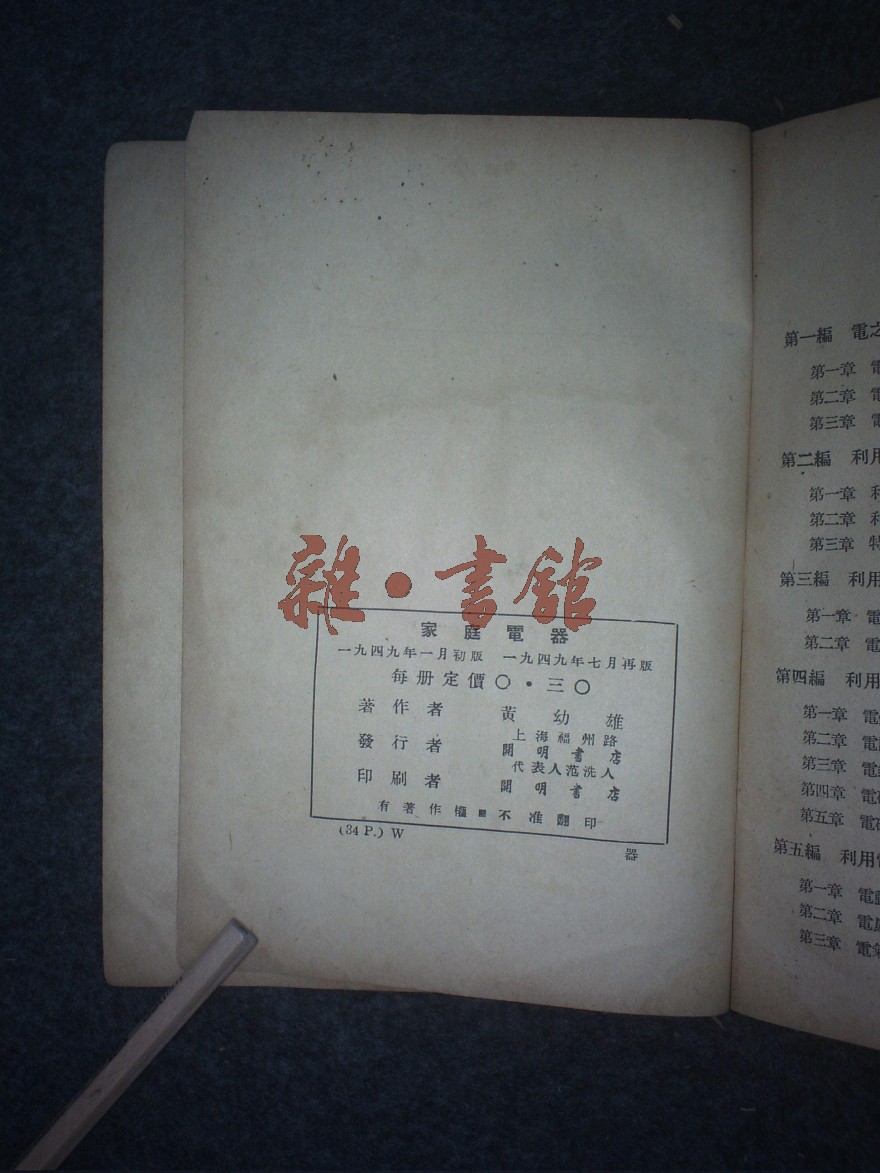 雜·書舘
家庭電器
一九四九年一月初版 一九四九年七月再版
每册定價〇·三〇
著作者 黃幼雄
發行者 上海福州路
開明書店
代表人范洗人
印刷者 開明書店
有著作權■不准翻印
(34 P.) W
器
第一編 電之
第一章 電
第二章 電
第三章 電
第二編 利用
第一章 利
第二章 利
第三章 特
第三編 利用
第一章 電
第二章 電
第四編 利用
第一章 電
第二章 電
第三章 電
第四章 電
第五章 電
第五編 利用
第一章 電
第二章 電
第三章 電